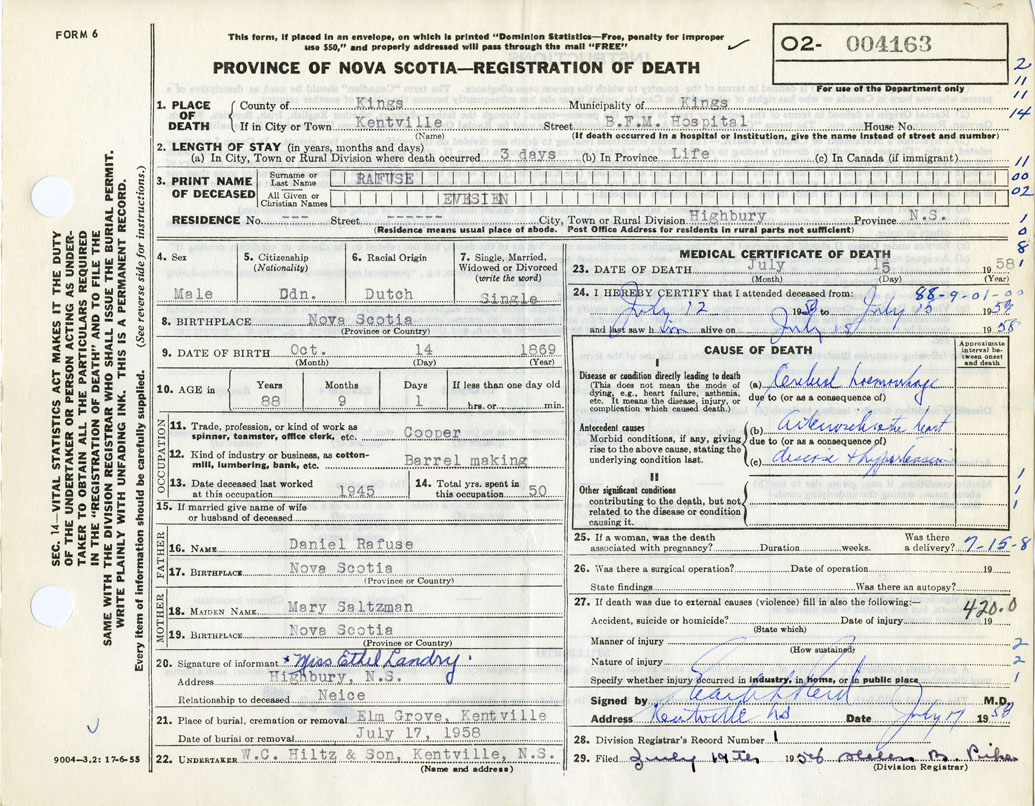 FORM 6
This form, if placed in an envelope, on which is printed "Dominion Statistics—Free, penalty for improper
use $50," and properly addressed will pass through the mail "FREE"
O2- 004163
For use of the Department only
PROVINCE OF NOVA SCOTIA—REGISTRATION OF DEATH
2
11
11
14
11
00
02
1
0
8
1
1. PLACE OF DEATH
County of Kings Municipality of Kings
If in City or Town Kentville Street B.F.M. Hospital House No.
(Name) (If death occurred in a hospital or institution, give the name instead of street and number)
2. LENGTH OF STAY (in years, months and days)
(a) In City, Town or Rural Division where death occurred 3 days (b) In Province Life (c) In Canada (if immigrant)
3. PRINT NAME OF DECEASED
Surname or Last Name RAFUSE
All Given or Christian Names EVESIEN
RESIDENCE No. --- Street ------ City, Town or Rural Division Highbury Province N.S.
(Residence means usual place of abode. Post Office Address for residents in rural parts not sufficient)
4. Sex
Male
5. Citizenship (Nationality)
Cdn.
6. Racial Origin
Dutch
7. Single, Married, Widowed or Divorced (write the word)
Single
8. BIRTHPLACE Nova Scotia
(Province or Country)
9. DATE OF BIRTH Oct. 14 1869
(Month) (Day) (Year)
10. AGE in
Years Months Days If less than one day old
88 9 1 hrs. or min.
OCCUPATION
11. Trade, profession, or kind of work as spinner, teamster, office clerk, etc. Cooper
12. Kind of industry or business, as cotton-mill, lumbering, bank, etc. Barrel making
13. Date deceased last worked at this occupation 1945
14. Total yrs. spent in this occupation 50
15. If married give name of wife or husband of deceased
FATHER
16. NAME Daniel Rafuse
17. BIRTHPLACE Nova Scotia
(Province or Country)
MOTHER
18. MAIDEN NAME Mary Saltzman
19. BIRTHPLACE Nova Scotia
(Province or Country)
20. Signature of informant Miss Ethel Landry.
Address Highbury, N.S.
Relationship to deceased Neice
21. Place of burial, cremation or removal Elm Grove, Kentville
Date of burial or removal July 17, 1958
22. UNDERTAKER W.C. Hiltz & Son, Kentville, N.S.
(Name and address)
MEDICAL CERTIFICATE OF DEATH
23. DATE OF DEATH July 15 1958
(Month) (Day) (Year)
88-9-01-00
24. I HEREBY CERTIFY that I attended deceased from:
July 12 1958 to July 15 1958
and last saw him alive on July 15 1958
CAUSE OF DEATH
Approximate interval between onset and death
Disease or condition directly leading to death
(This does not mean the mode of dying, e.g., heart failure, asthenia, etc. It means the disease, injury, or complication which caused death.)
(a) Cerebral haemorrhage
due to (or as a consequence of)
Antecedent causes
Morbid conditions, if any, giving rise to the above cause, stating the underlying condition last.
(b) arteriosclerotic heart
due to (or as a consequence of)
(c) disease & hypertension
II
Other significant conditions
contributing to the death, but not related to the disease or condition causing it.
1
1
1
25. If a woman, was the death associated with pregnancy? Duration weeks. Was there a delivery?
7-15-8
26. Was there a surgical operation? Date of operation 19
State findings Was there an autopsy?
27. If death was due to external causes (violence) fill in also the following:—
420.0
Accident, suicide or homicide? Date of injury 19
(State which)
Manner of injury
(How sustained)
2
Nature of injury
2
Specify whether injury occurred in industry, in home, or in public place
1
Signed by M.D.
Address Kentville NS Date July 17 1958
28. Division Registrar's Record Number 1
29. Filed July 19th 1958
(Division Registrar)
SEC. 14—VITAL STATISTICS ACT MAKES IT THE DUTY
OF THE UNDERTAKER OR PERSON ACTING AS UNDER-
TAKER TO OBTAIN ALL THE PARTICULARS REQUIRED
IN THE "REGISTRATION OF DEATH" AND TO FILE THE
SAME WITH THE DIVISION REGISTRAR WHO SHALL ISSUE THE BURIAL PERMIT.
WRITE PLAINLY WITH UNFADING INK. THIS IS A PERMANENT RECORD.
Every item of information should be carefully supplied. (See reverse side for instructions.)
9004—3.2: 17-6-55